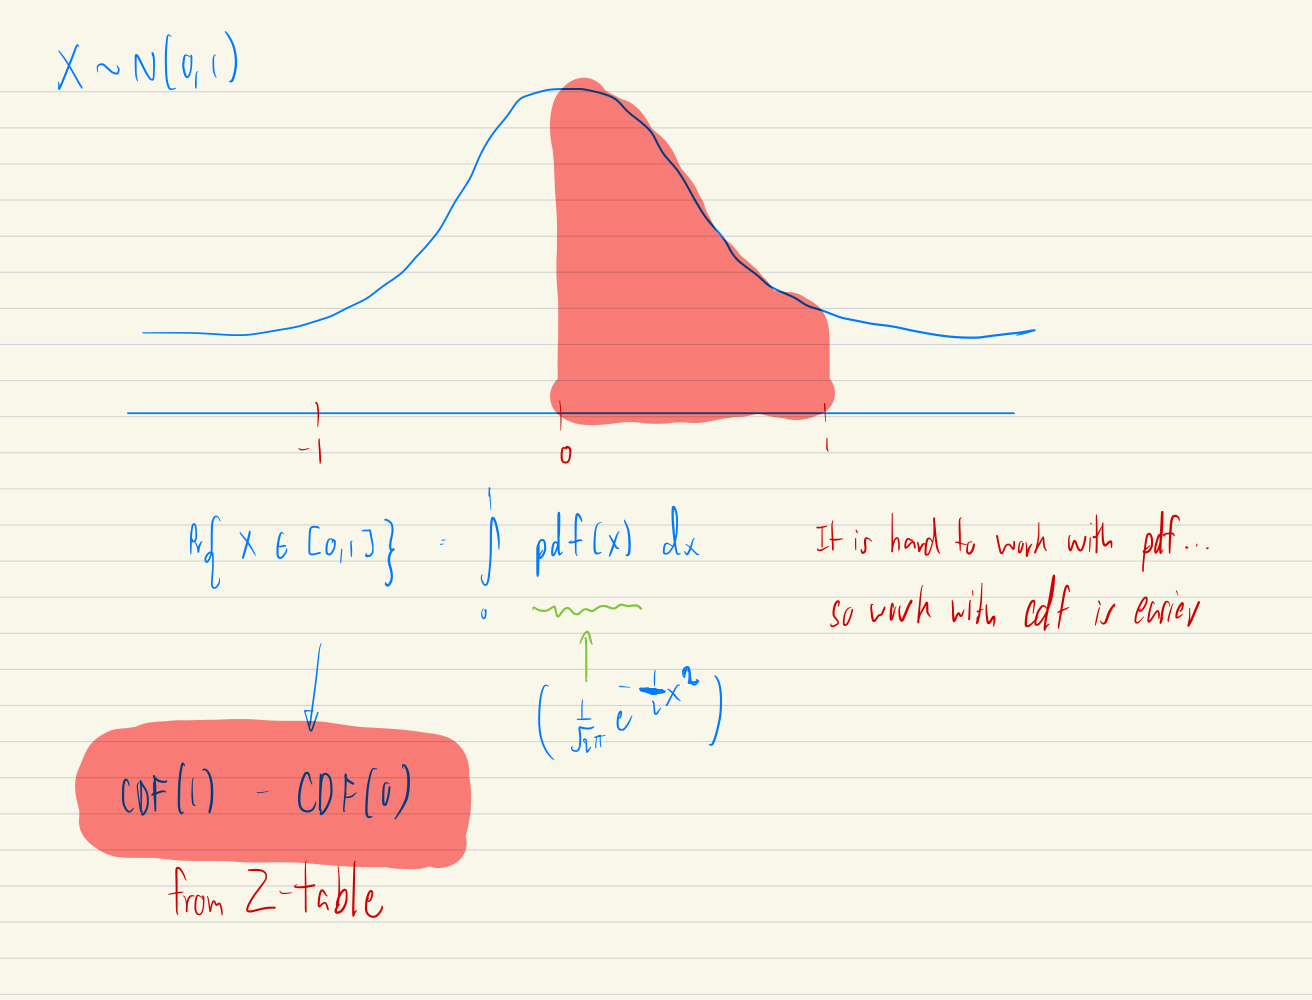 X ~ N(0,1)
-1 0 1
Pr{ X ∈ [0,1] } = ∫₀¹ pdf(x) dx
It is hard to work with pdf...
so work with cdf is easier
( 1/√2π e^(-1/2 x²) )
CDF(1) - CDF(0)
from Z-table